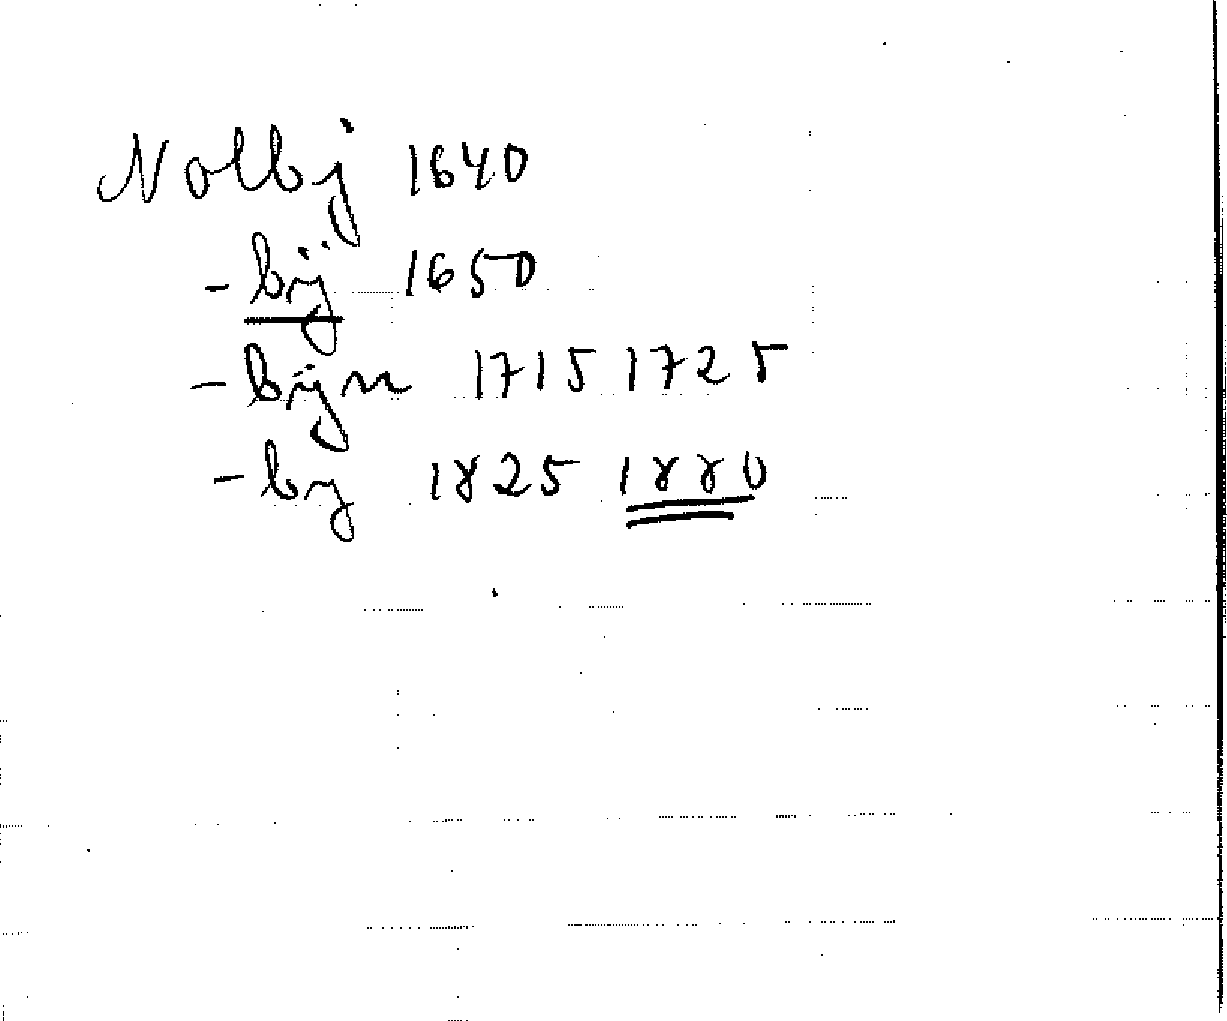 Nolbj 1640
- bij 1650
- bijn 1715 1725
- by 1825 1880